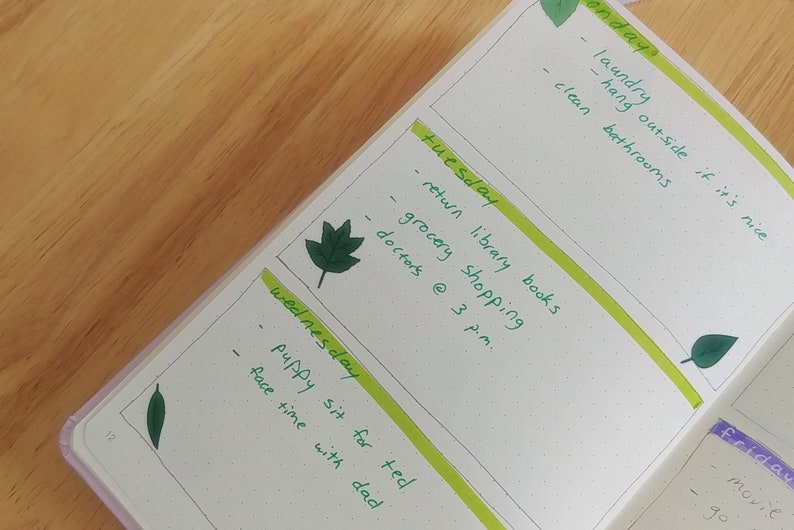 onday
- laundry
- hang outside if it's nice
- clean bathrooms
tuesday
- return library books
- grocery shopping
- doctors @ 3 p.m.
wednesday
- puppy sit for ted
- face time with dad
12
friday
- movie
- go